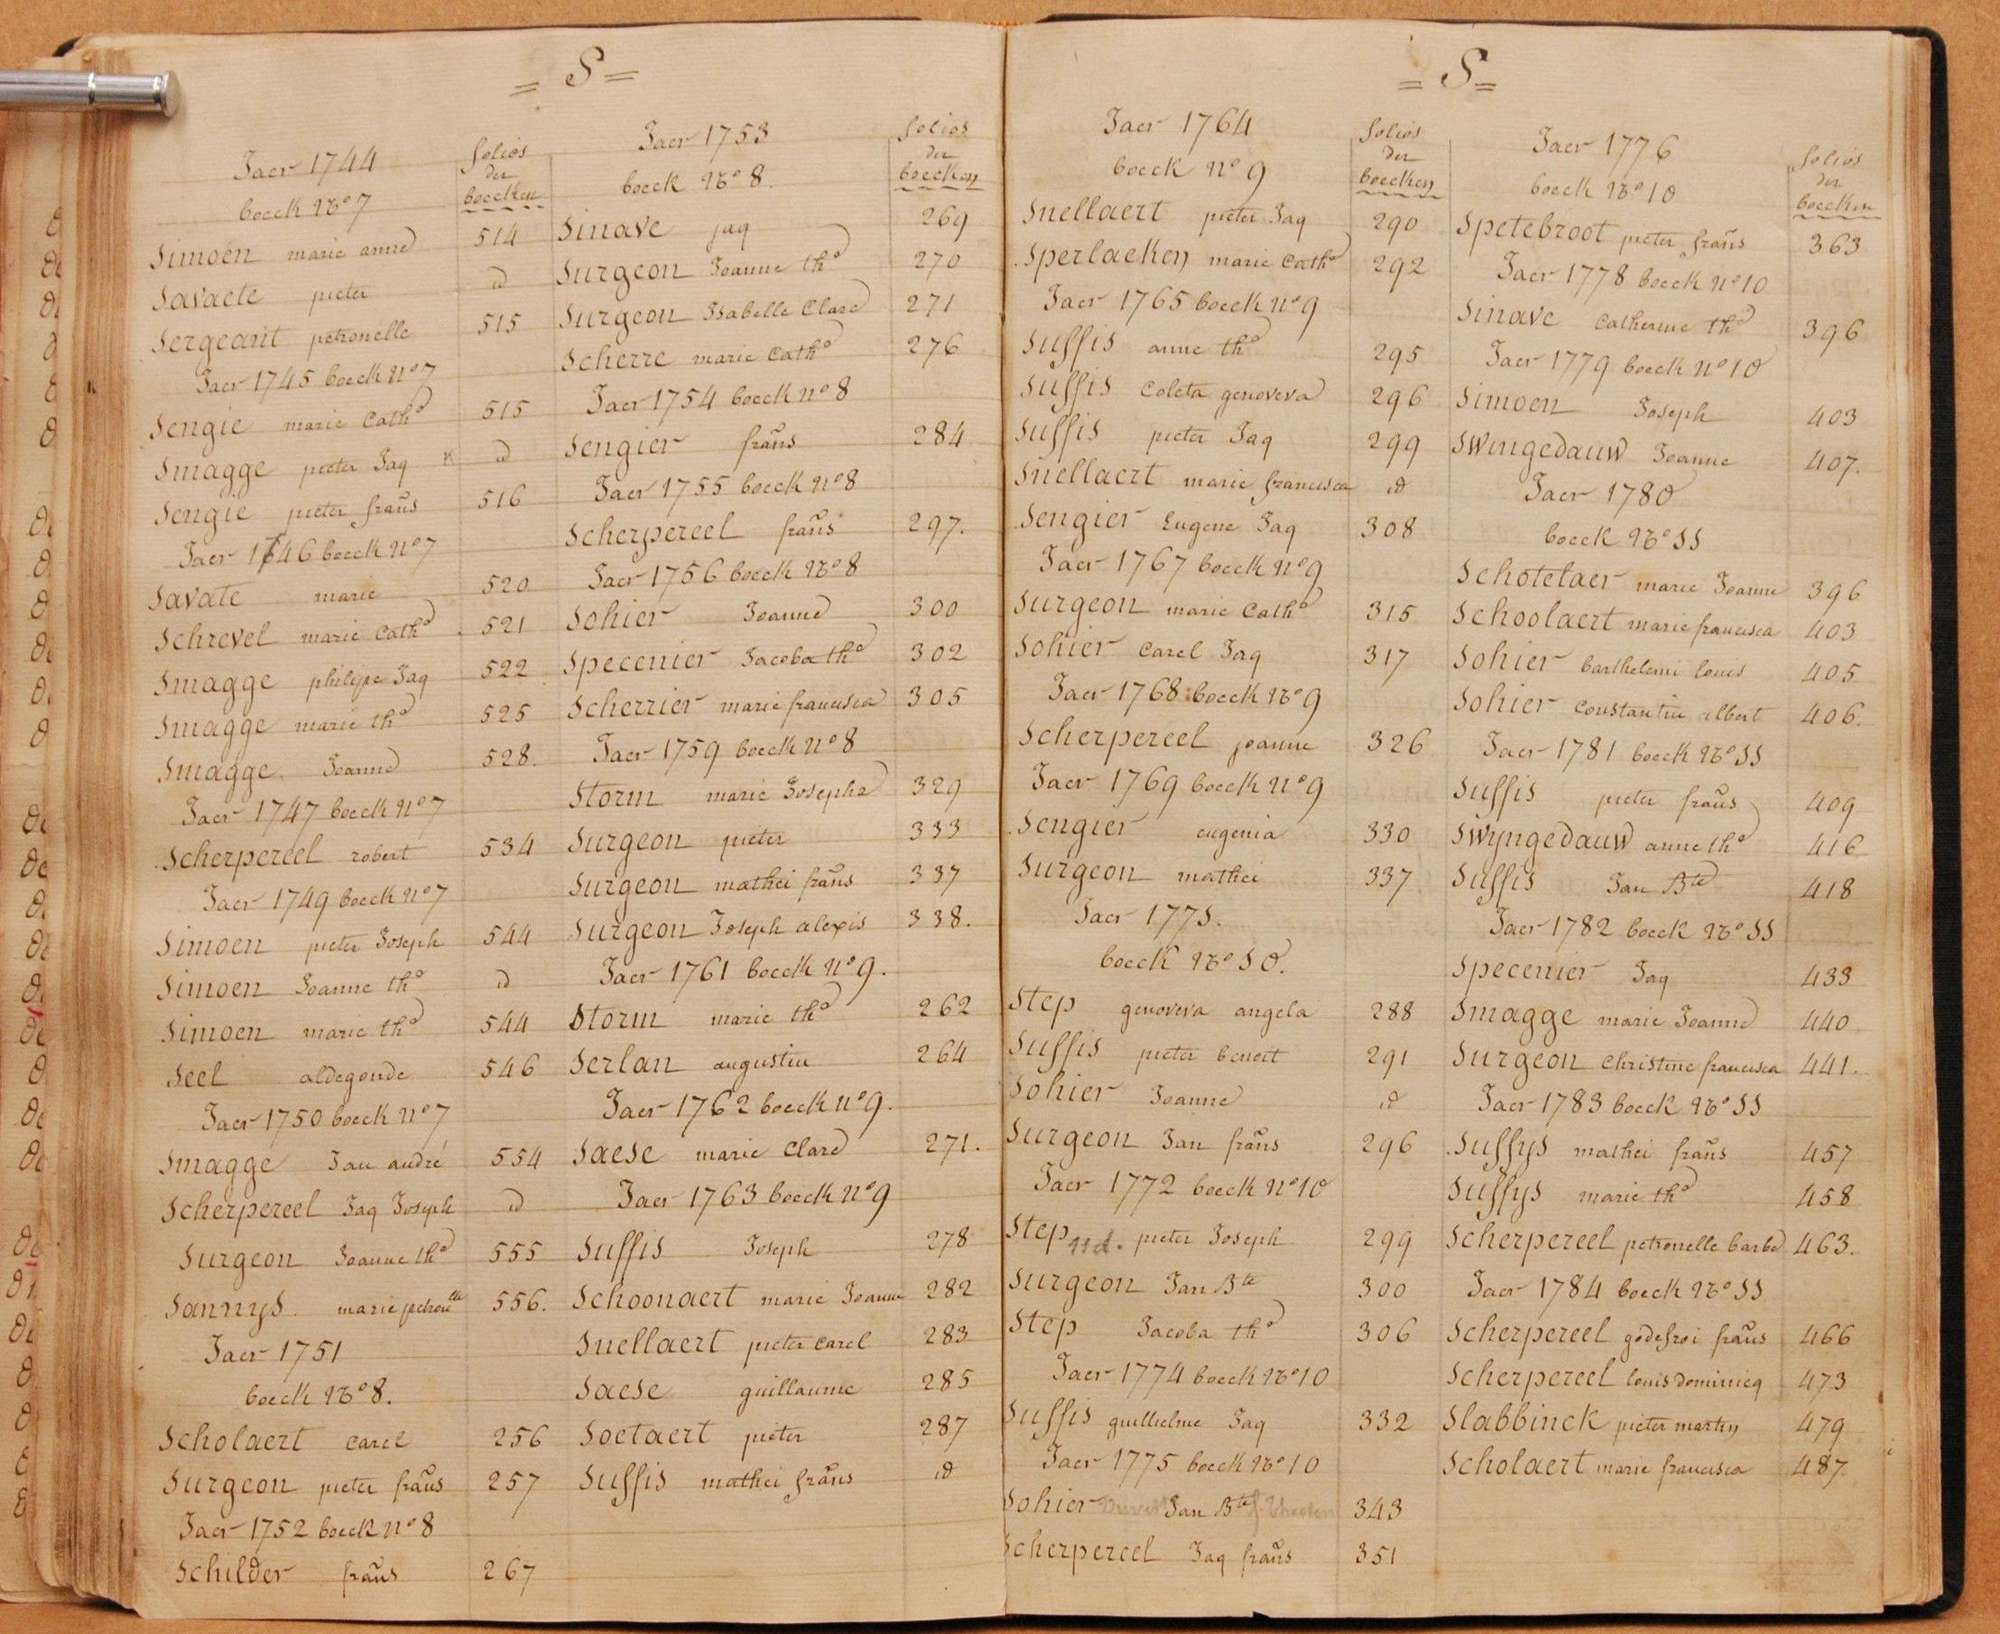 = S =
Jaer 1744
boeck No 7
folios
der
boecken
Simoen marie anne 514
Savaete pieter id
Sergeant petronelle 515
Jaer 1745 boeck No 7
Sengie marie Cath.a 515
Smagge pieter Jaq id
Sengie pieter frans 516
Jaer 1746 boeck No 7
Savate marie 520
Schrevel marie Cath.a 521
Smagge philipe Jaq 522
Smagge marie th.a 525
Smagge Joanne 528.
Jaer 1747 boeck No 7
Scherpereel robert 534
Jaer 1749 boeck No 7
Simoen pieter Joseph 544
Simoen Joanne th.a id
Simoen marie th.a 544
Seel aldegonde 546
Jaer 1750 boeck No 7
Smagge Jan andré 554
Scherpereel Jaq Joseph id
Surgeon Joanne th.a 555
Sannys marie petron.lle 556.
Jaer 1751
boeck No 8.
Scholaert Carel 256
Surgeon pieter frans 257
Jaer 1752 boeck No 8
Schilder frans 267
Jaer 1753
boeck No 8.
folios
der
boecken
Sinave jaq 269
Surgeon Joanne th.a 270
Surgeon Isabelle Clare 271
Scherre marie Cath.a 276
Jaer 1754 boeck No 8
Sengier frans 284
Jaer 1755 boeck No 8
Scherpereel frans 297.
Jaer 1756 boeck No 8
Sohier Joanne 300
Specenier Jacoba th.a 302
Scherrier marie francisca 305
Jaer 1759 boeck No 8
Storm marie Josepha 329
Surgeon pieter 333
Surgeon mathei frans 337
Surgeon Joseph alexis 338.
Jaer 1761 boeck No 9.
Storm marie th.a 262
Serlan augustin 264
Jaer 1762 boeck No 9.
Saese marie Clare 271.
Jaer 1763 boeck No 9
Suffis Joseph 278
Schoonaert marie Joanne 282
Snellaert pieter Carel 283
Saese guillaume 285
Soetaert pieter 287
Suffis mathei frans id
= S =
Jaer 1764
boeck No 9
folios
der
boecken
Snellaert pieter Jaq 290
Sperlaeken marie Cath.a 292
Jaer 1765 boeck No 9
Suffis anne th.a 295
Suffis Coleta genoveva 296
Suffis pieter Jaq 299
Snellaert marie francisca id
Sengier Eugene Jaq 308
Jaer 1767 boeck No 9
Surgeon marie Cath.a 315
Sohier Carel Jaq 317
Jaer 1768 boeck No 9
Scherpereel joanne 326
Jaer 1769 boeck No 9
Sengier eugenia 330
Surgeon mathei 337
Jaer 1771.
boeck No 10.
Step genoveva angela 288
Suffis pieter benoit 291
Sohier Joanne id
Surgeon Jan frans 296
Jaer 1772 boeck No 10
Step pieter Joseph 299
Surgeon Jan B.te 300
Step Jacoba th.a 306
Jaer 1774 boeck No 10
Suffis guillielme Jaq 332
Jaer 1775 boeck No 10
Sohier Jan B.te 343
Scherpereel Jaq frans 351
Jaer 1776
boeck No 10
folios
der
boecken
Spetebroot pieter frans 363
Jaer 1778 boeck No 10
Sinave Catherine th.a 396
Jaer 1779 boeck No 10
Simoen Joseph 403
Swingedauw Joanne 407.
Jaer 1780
boeck No 11
Schotelaer marie Joanne 396
Schoolaert marie francisca 403
Sohier barthelemi louis 405
Sohier Constantin albert 406.
Jaer 1781 boeck No 11
Suffis pieter frans 409
Swyngedauw anne th.a 416
Suffis Jan B.te 418
Jaer 1782 boeck No 11
Specenier Jaq 433
Smagge marie Joanne 440
Surgeon Christine francisca 441.
Jaer 1783 boeck No 11
Suffys mathei frans 457
Suffys marie th.a 458
Scherpereel petronelle barbe 463.
Jaer 1784 boeck No 11
Scherpereel godefroi frans 466
Scherpereel louis Dominicq 473
Slabbinck pieter martin 479
Scholaert marie francisca 487.